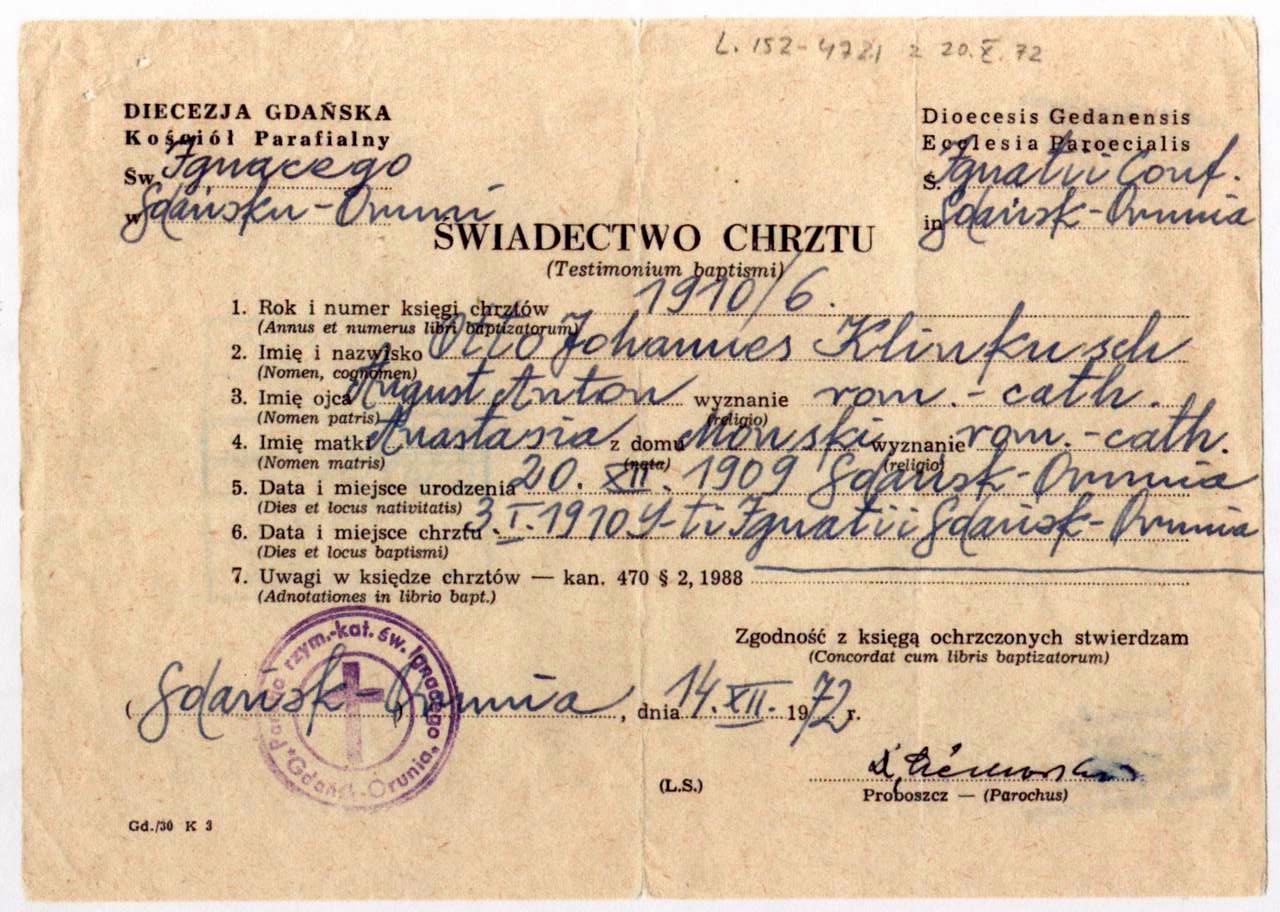 L. 152-472.1 z 20.X.72
DIECEZJA GDAŃSKA
Kościół Parafialny
Św. Ignacego
w Gdańsku-Oruni
Dioecesis Gedanensis
Ecclesia Paroecialis
S. Ignatii Conf.
in Gdańsk-Orunia
ŚWIADECTWO CHRZTU
(Testimonium baptismi)
1. Rok i numer księgi chrztów 1910/6.
(Annus et numerus libri baptizatorum)
2. Imię i nazwisko Otto Johannes Klinkusch
(Nomen, cognomen)
3. Imię ojca August Anton wyznanie rom.-cath.
(Nomen patris) (religio)
4. Imię matki Anastasia z domu Mowski wyznanie rom.-cath.
(Nomen matris) (nata) (religio)
5. Data i miejsce urodzenia 20. XII. 1909 Gdańsk-Orunia
(Dies et locus nativitatis)
6. Data i miejsce chrztu 3.I.1910 S-ti Ignatii Gdańsk-Orunia
(Dies et locus baptismi)
7. Uwagi w księdze chrztów — kan. 470 § 2, 1988
(Adnotationes in librio bapt.)
Zgodność z księgą ochrzczonych stwierdzam
(Concordat cum libris baptizatorum)
Parafia rzym.-kat. św. Ignacego
Gdańsk-Orunia
(Gdańsk-Orunia), dnia 14.XII. 1972 r.
(L.S.)
Proboszcz — (Parochus)
Gd./30 K 3